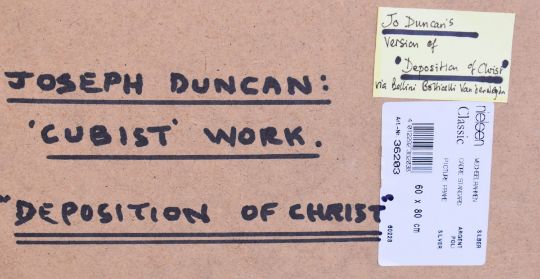 JOSEPH DUNCAN:
'CUBIST' WORK.
"DEPOSITION OF CHRIST"
Jo Duncan's
Version of
"Deposition of Christ"
via Bellini Botticelli Van der Weyden
nielsen
Classic
WECHSELRAHMEN
CADRE STANDARD
PICTURE FRAME
SILBER
ARGENT
POLI
SILVER
Art.-Nr. 36203
60 x 80 cm
60228